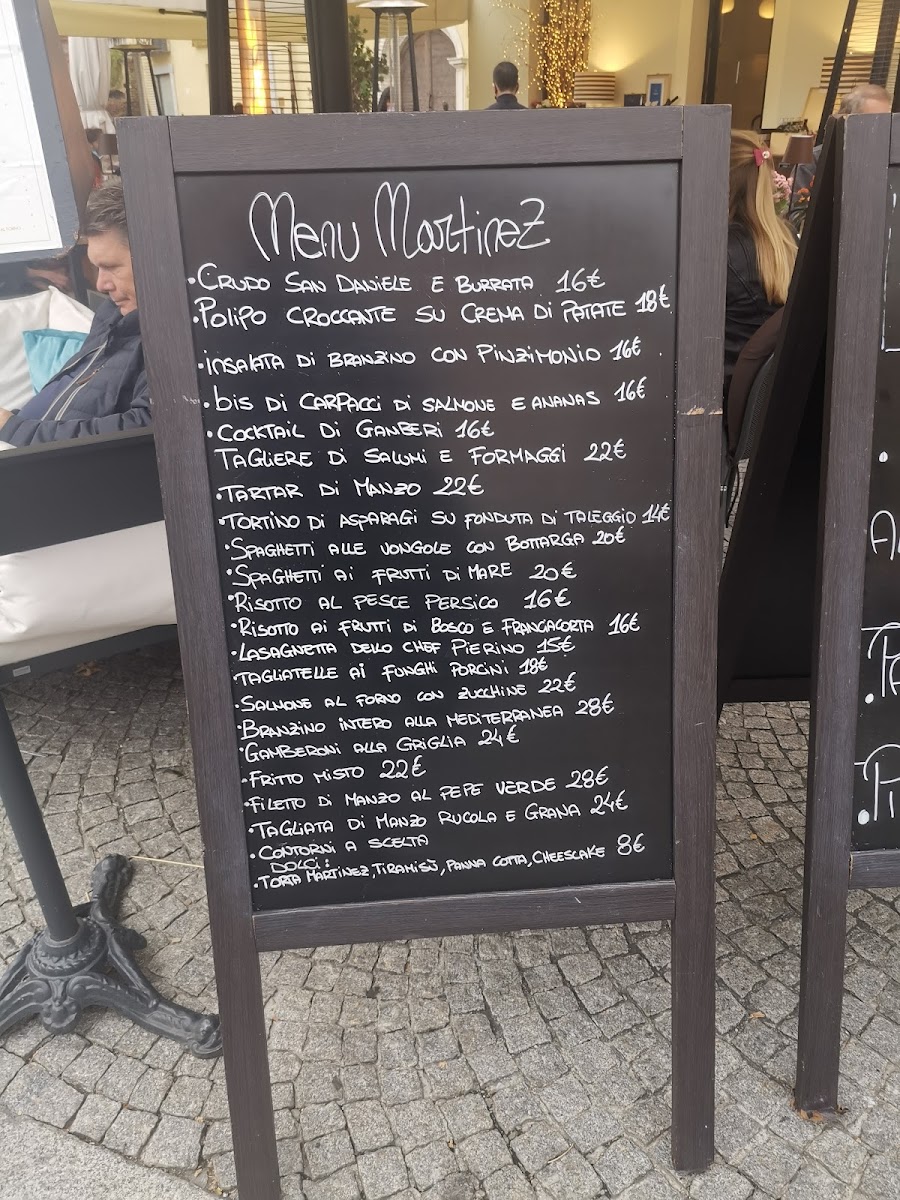 Menu Martinez
•Crudo San Daniele e Burrata 16€
•Polipo croccante su crema di patate 18€
•insalata di branzino con pinzimonio 16€
•bis di carpacci di salnone e ananas 16€
•Cocktail di ganberi 16€
Tagliere di salumi e formaggi 22€
•Tartar di manzo 22€
•Tortino di asparagi su fonduta di taleggio 14€
•Spaghetti alle vongole con bottarga 20€
•Spaghetti ai frutti di mare 20€
•Risotto al pesce persico 16€
•Risotto ai frutti di bosco e Franciacorta 16€
•Lasagnetta dello chef Pierino 15€
Tagliatelle ai funghi porcini 18€
•Salnone al forno con zucchine 22€
•Branzino intero alla mediterranea 28€
•Gamberoni alla griglia 24€
•Fritto misto 22€
•Filetto di manzo al pepe verde 28€
•Tagliata di manzo rucola e grana 24€
•Contorni a scelta
Dolci:
•Torta Martinez, Tiramisù, panna cotta, cheescake 8€